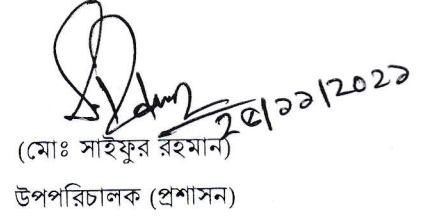 ২৫/১১/২০২১
(মোঃ সাইফুর রহমান)
উপপরিচালক (প্রশাসন)